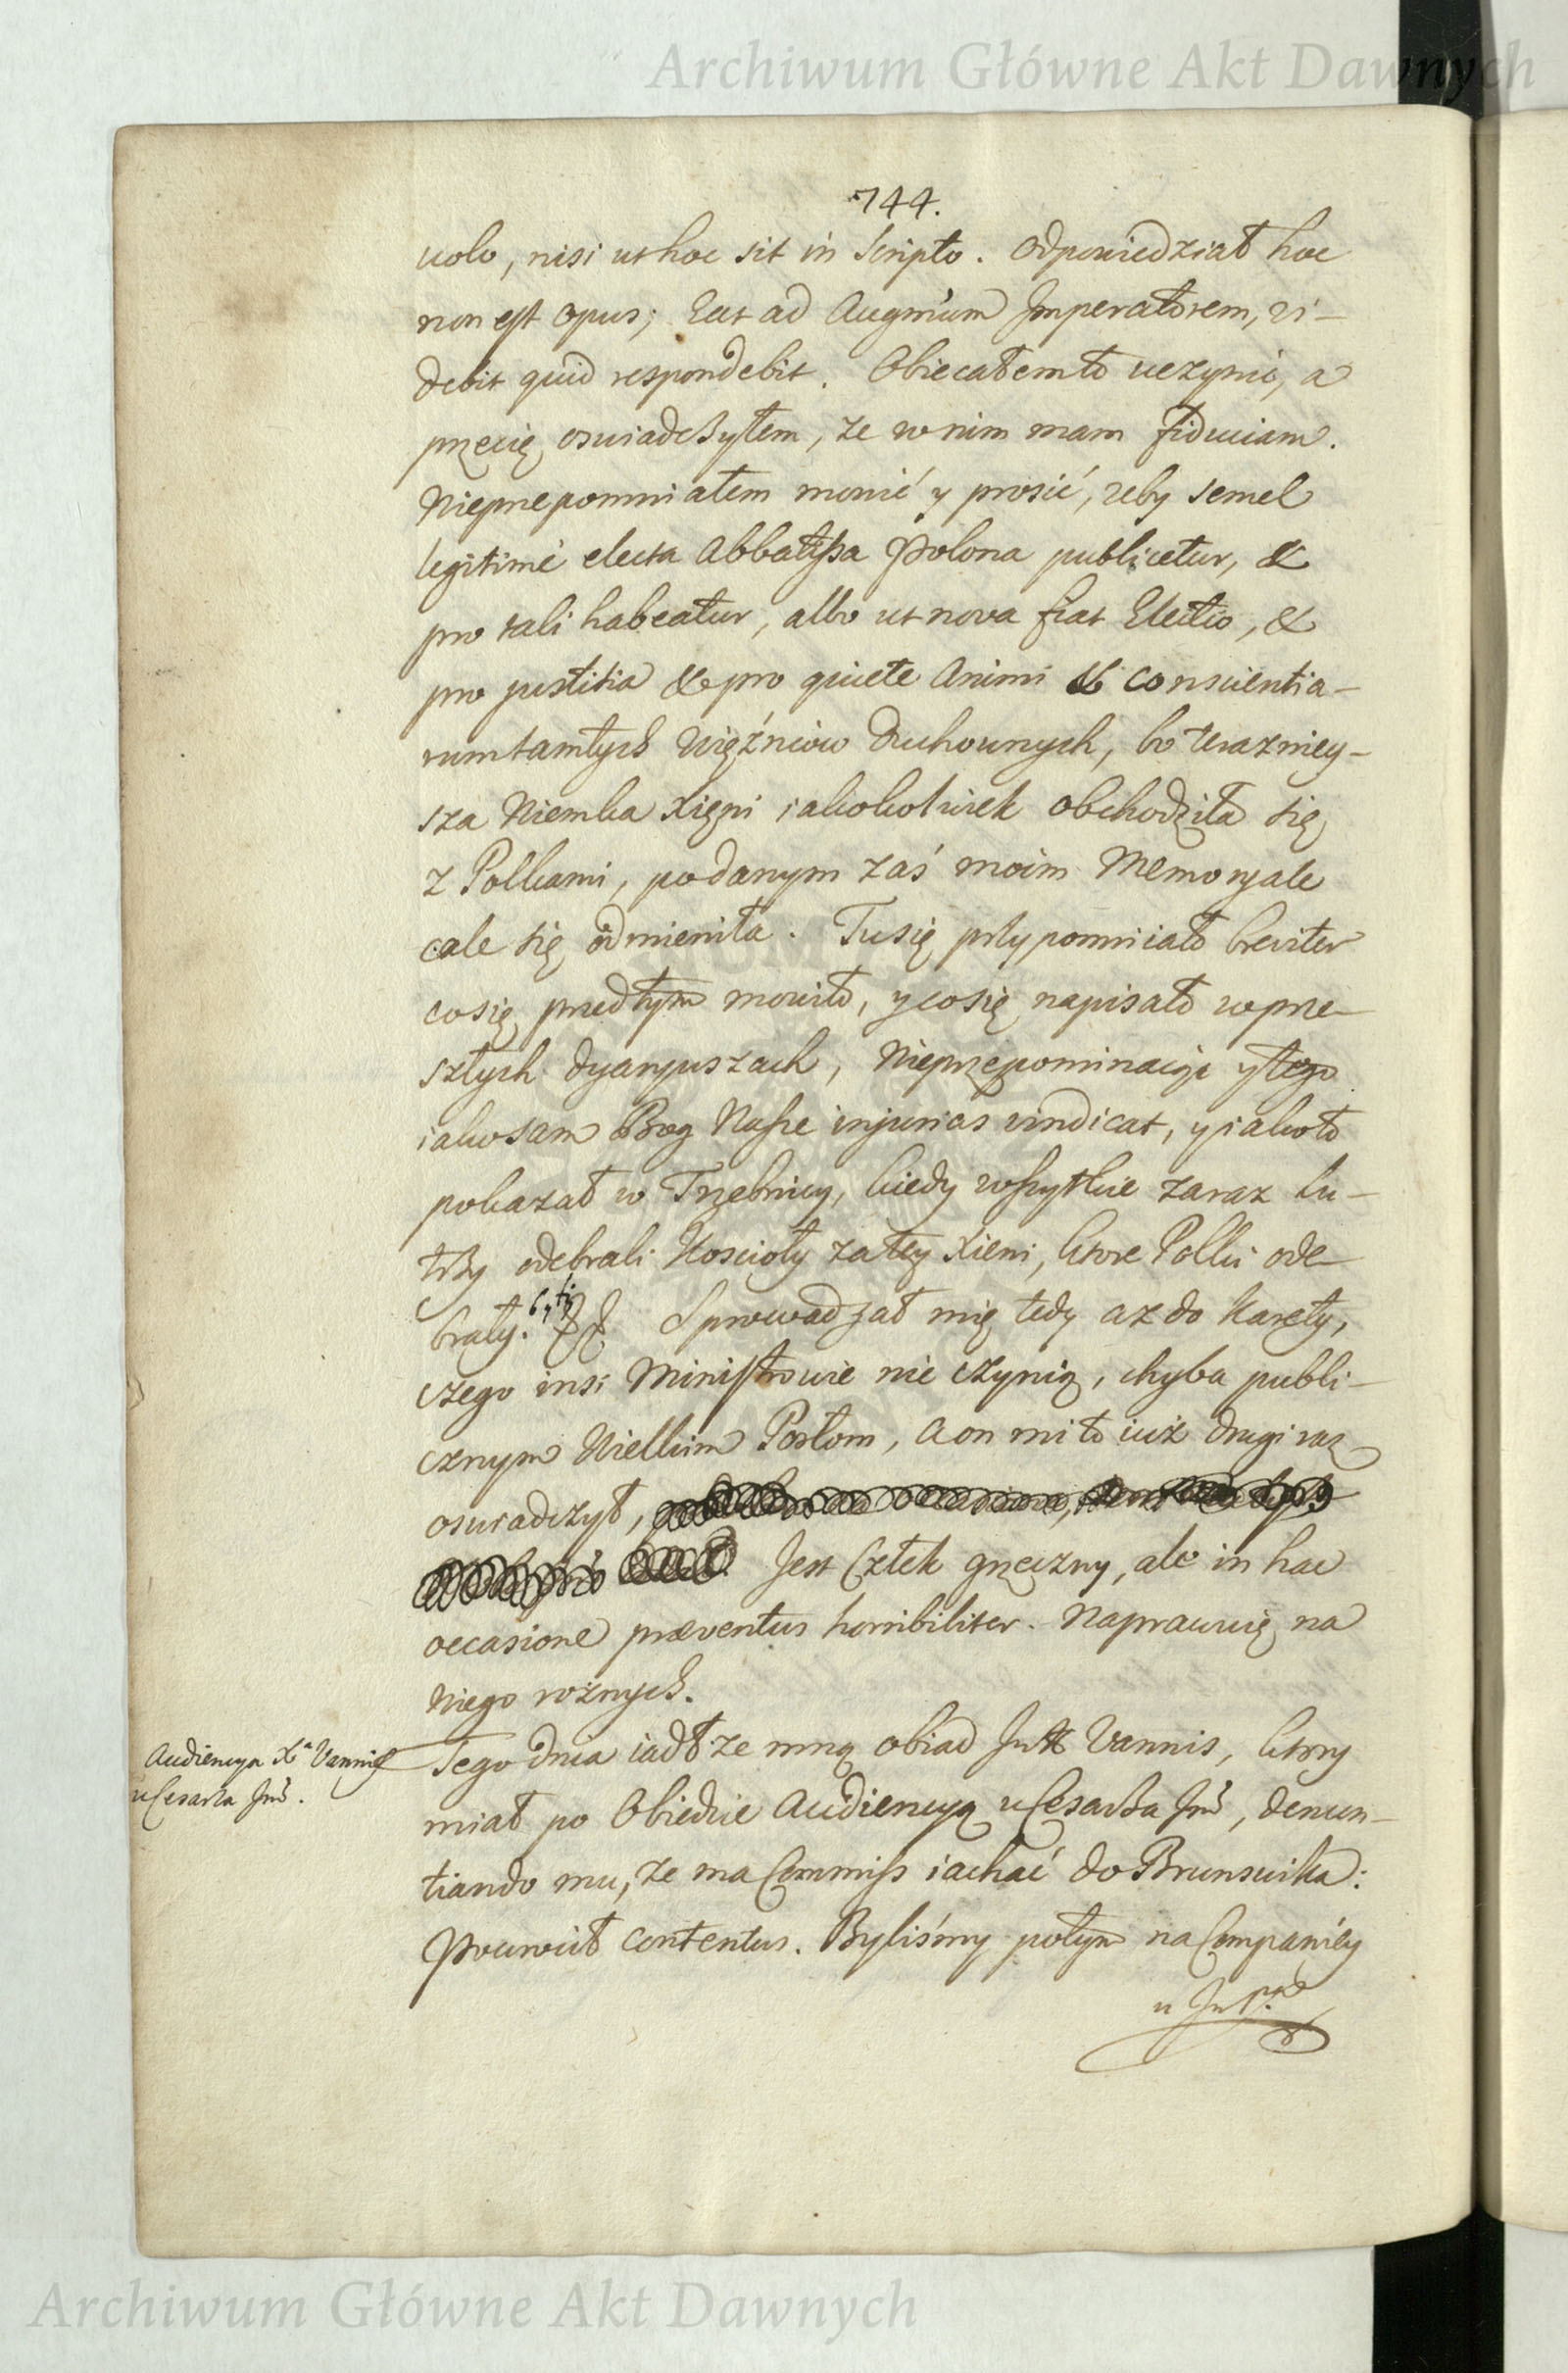 Archiwum Główne Akt Dawnych
744.
volo, nisi ut hoc sit in Scripto. Odpowiedział hoc
non est opus; Eat ad Augm̃um Imperatorem, vi-
debit quid respondebit. Obiecałem to uczynić, a
przecię oswiadczyłem, ze w nim mam fiduciam.
Nieprzepomniałem mowić y prosić, zeby semel
legitimè electa Abbatissa Polona publicetur, &
pro tali habeatur, albo ut nova fiat Electio, &
pro justitia & pro quiete Animi & conscientia-
rum tamtych Więźniow Duchownych, bo terazniey-
sza Niemka Xięni iakokolwiek obchodziła się
z Polkami, po danym zaś moim Memoryale
cale się odmieniła. Tu się przypomniało breviter
co się przedtym mowiło, y co się napisało w prze-
szłych dyaryuszach, nieprzepominaiąc y tego
iako sam Bog Nasze injurias vindicat, y iako to
pokazał w Trzebnicy, kiedy wszytkie zaraz Lu-
trzy odebrali Kościoły za tey Xieni, ktore Polki ode-
brały. były Sprowadzał mię tedy az do Karety,
czego insi Ministrowie nie czynią, chyba publi-
cznym Wielkim Posłom, a on mi to iuż drugi raz
oswiadczył,
Jest Człek grzeczny, ale in hac
occasione præventus horribiliter. Naprawię na
Niego rożnych.
Audiencya Xa Vannis
u Cesarza Jmċi.
Tego dnia iadł ze mną obiad Vannis, ktory
miał po Obiedzie Audiencyą u Cesarza Jmċi, denun-
tiando mu, ze ma Commiss iachać do Brunswika:
Powrocił contentus. Byliśmy potym na Companiey
u
Archiwum Główne Akt Dawnych